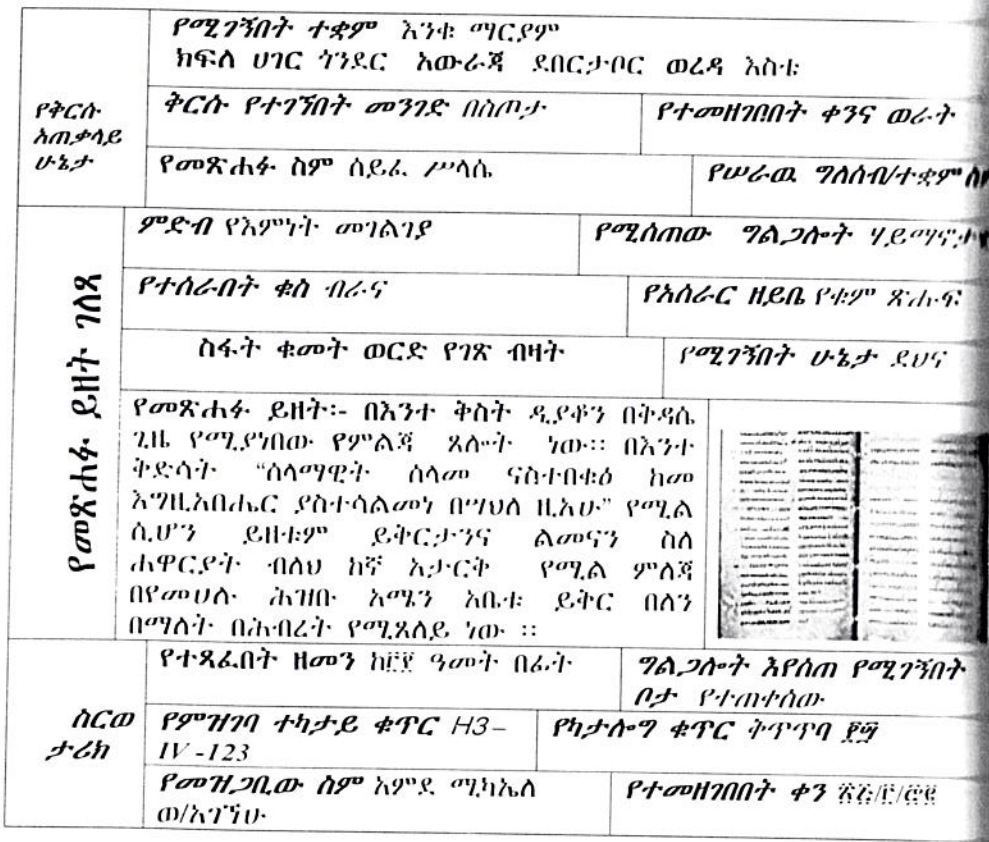 የሚገኝበት ተቋም እንቁ ማርያም
ክፍለ ሀገር ጎንደር አውራጃ ደበርታቦር ወረዳ እስቴ
የቅርሱ
አጠቃላይ
ሁኔታ
ቅርሱ የተገኘበት መንገድ በስጦታ
የተመዘገበበት ቀንና ወራት
የመጽሐፉ ስም ሰይፈ ሥላሴ
የሠራዉ ግለሰብ/ተቋም
የመጽሐፉ ይዘት ገለጻ
ምድብ የእምነት መገልገያ
የሚሰጠው ግልጋሎት
የተሰራበት ቁስ ብራና
የአሰራር ዘይቤ የቁም ጽሑፍ
ስፋት ቁመት ወርድ የገጽ ብዛት
የሚገኝበት ሁኔታ ደህና
የመጽሐፉ ይዘት፡- በእንተ ቅስት ዲያቆን በቅዳሴ
ጊዜ የሚያነበው የምልጃ ጸሎት ነው። በእንተ
ቅድሳት “ሰላማዊት ሰላመ ናስተበቁዕ ከመ
እግዚአብሔር ያስተሳልመነ በሣህለ ዚአሁ” የሚል
ሲሆን ይዘቱም ይቅርታንና ልመናን ስለ
ሐዋርያት ብለህ ከኛ አታርቅ የሚል ምለጃ
በየመሀሉ ሕዝቡ አሜን አቤቱ ይቅር በለን
በማለት በሕብረት የሚጸለይ ነው ።
ስርወ
ታሪክ
የተጻፈበት ዘመን ዓመት በፊት
ግልጋሎት እየሰጠ የሚገኝበት
ቦታ የተጠቀሰው
የምዝገባ ተካታይ ቁጥር H3-
IV -123
የካታሎግ ቁጥር ቅጥጥባ
የመዝጋቢው ስም አምደ ሚካኤለ
ወ/አገኘሁ
የተመዘገበበት ቀን